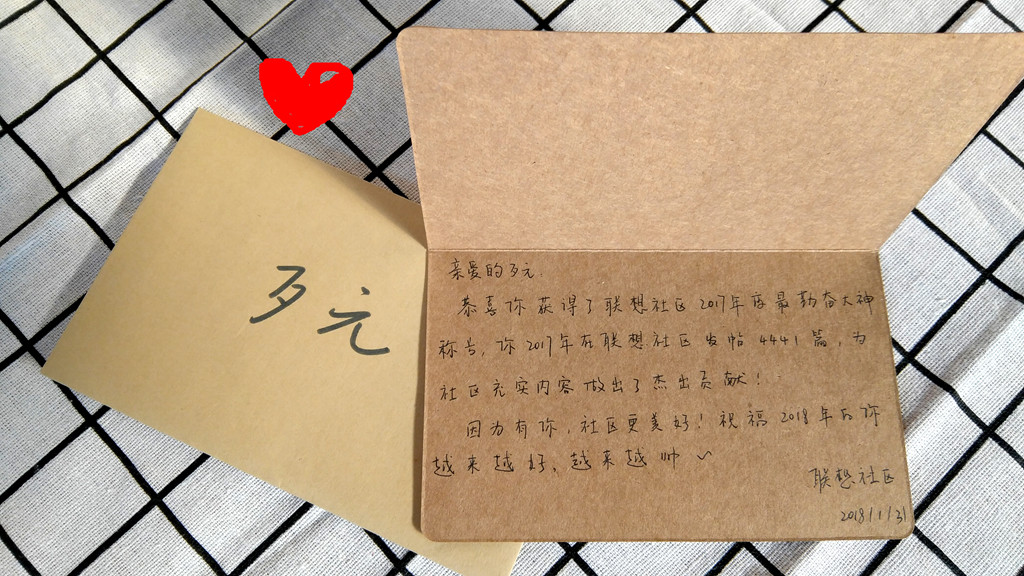 歹元
亲爱的歹元.
恭喜你获得了联想社区2017年度最勤奋大神
称号,你2017年在联想社区发帖4441篇,为
社区充实内容做出了杰出贡献!
因为有你,社区更美好!祝福2018年的你
越来越好、越来越帅~
联想社区
2018/1/31